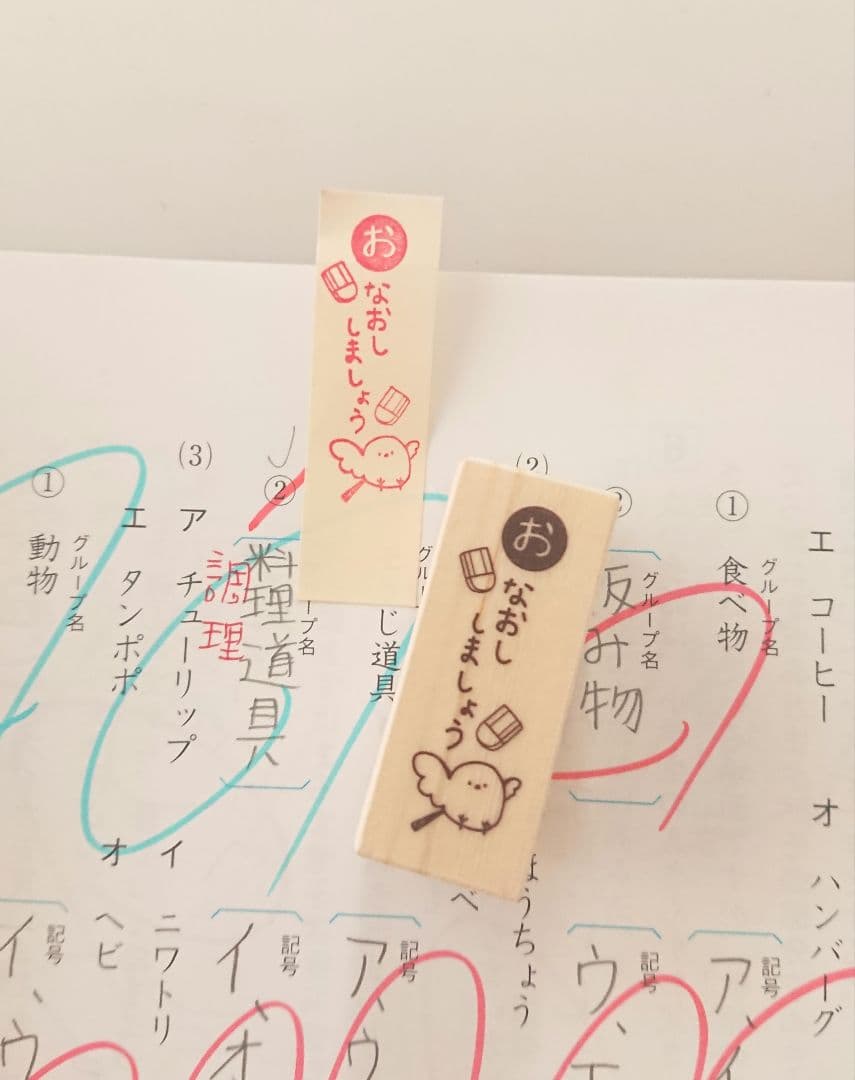 お
なおし
しましょう
お
なおし
しましょう
エ コーヒー
オ ハンバーグ
①
グループ名
食べ物
記号
ア、イ
(2)
②
グループ名
物
記号
ウ、エ
ほうちょう
じ道具
記号
ア、ウ
②
グループ名
料理道具
調理
記号
イ、オ
(3)
ア チューリップ
イ ニワトリ
エ タンポポ
オ ヘビ
①
グループ名
動物
記号
イ、ウ